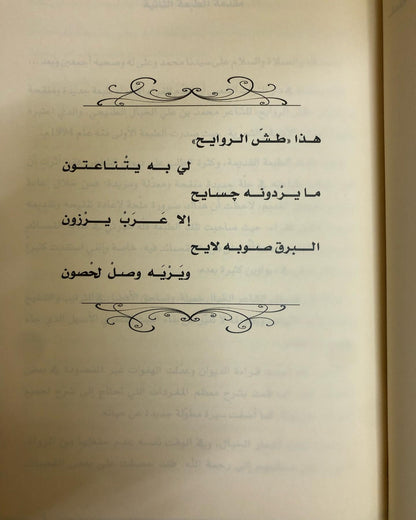 هذا «طشّ الروايح»
لي به يتْناعتون
ما يرْدونه چسايح
إلا عَرَبْ يرْزون
البرق صوبه لايح
ويَرْيَه وصلْ لحْصون